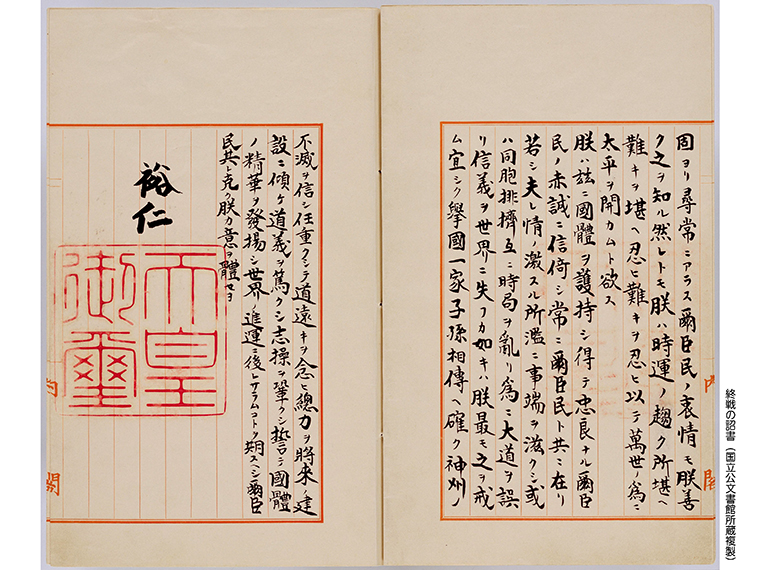 固ヨリ尋常ニアラス爾臣民ノ衷情モ朕善
ク之ヲ知ル然レトモ朕ハ時運ノ趨ク所堪ヘ
難キヲ堪ヘ忍ヒ難キヲ忍ヒ以テ萬世ノ為ニ
太平ヲ開カムト欲ス
朕ハ茲ニ國體ヲ護持シ得テ忠良ナル爾臣
民ノ赤誠ニ信倚シ常ニ爾臣民ト共ニ在リ
若シ夫レ情ノ激スル所濫ニ事端ヲ滋クシ或
ハ同胞排擠互ニ時局ヲ亂リ為ニ大道ヲ誤
リ信義ヲ世界ニ失フカ如キハ朕最モ之ヲ戒
ム宜シク擧國一家子孫相傳ヘ確ク神州ノ
内閣
不滅ヲ信シ任重クシテ道遠キヲ念ヒ總力ヲ將來ノ建
設ニ傾ケ道義ヲ篤クシ志操ヲ鞏クシ誓テ國體
ノ精華ヲ發揚シ世界ノ進運ニ後レサラムコトヲ期スヘシ爾臣
民其レ克ク朕カ意ヲ體セヨ
裕仁
天皇
御璽
内閣
終戦の詔書（国立公文書館所蔵複製）